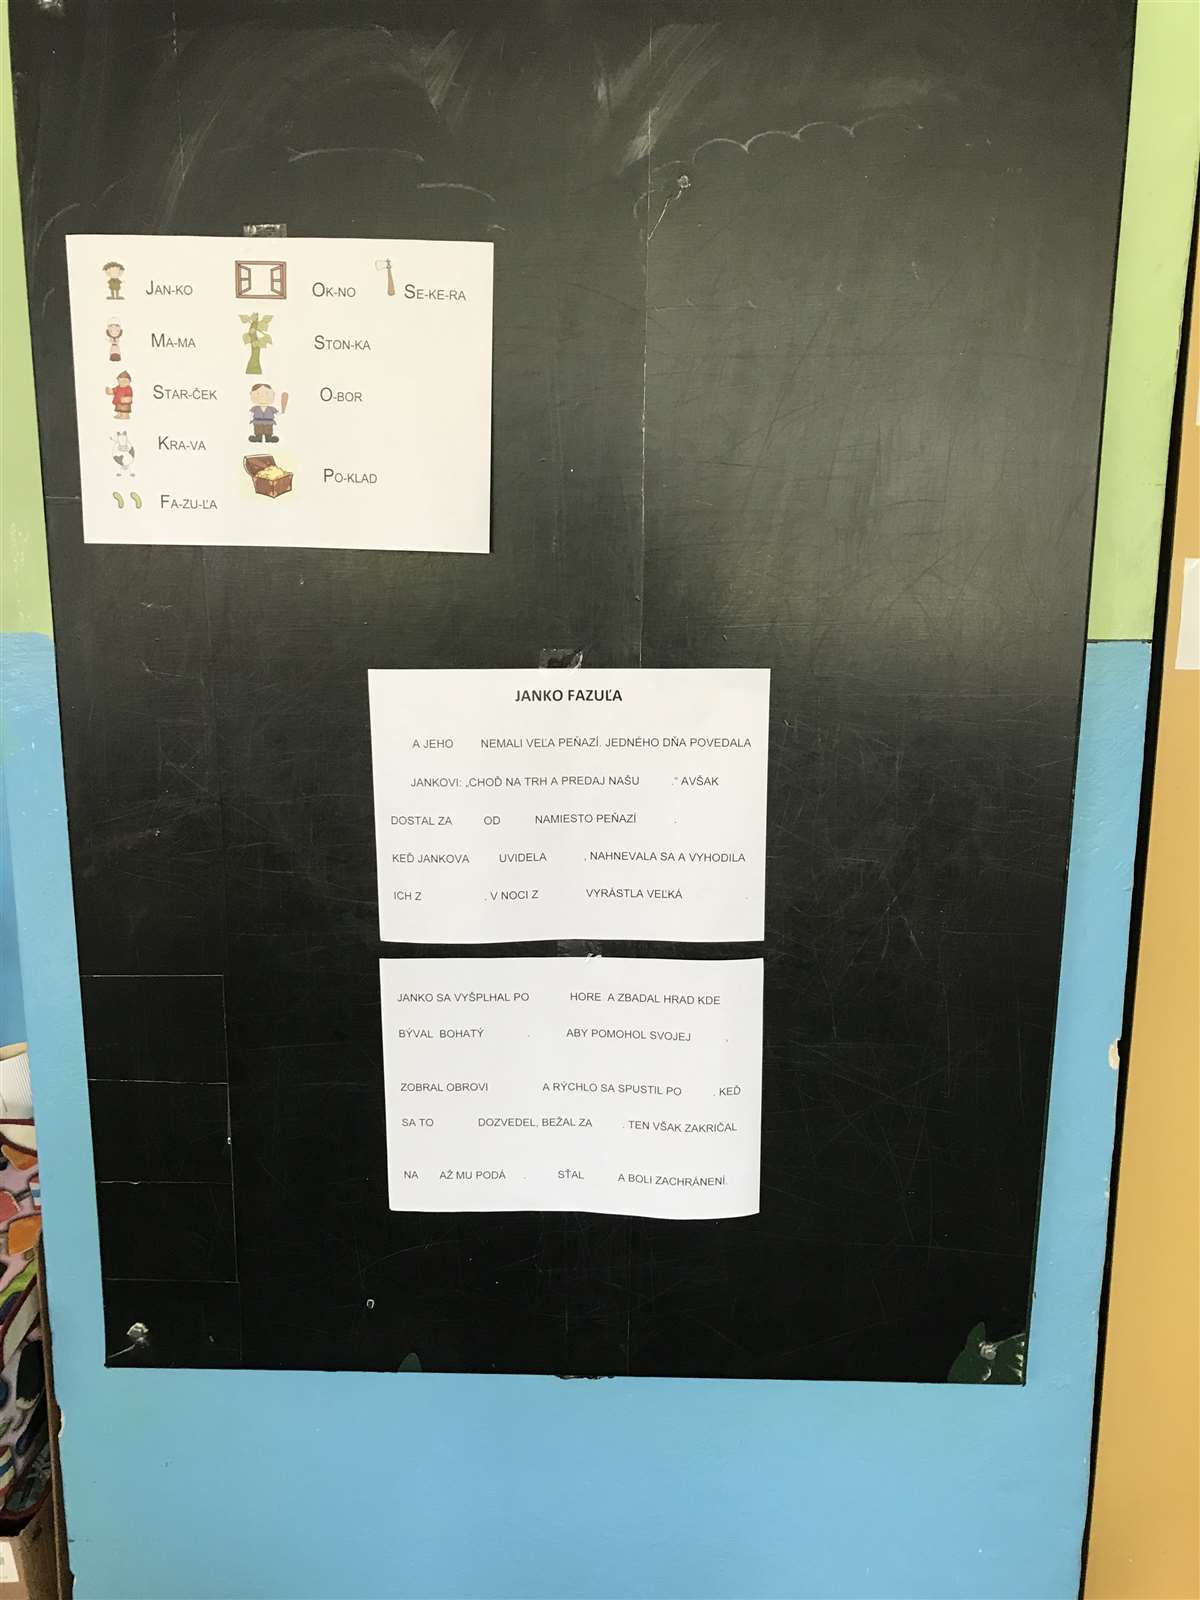 JAN-KO OK-NO SE-KE-RA
MA-MA STON-KA
STAR-ČEK O-BOR
KRA-VA
PO-KLAD
FA-ZU-ĽA
JANKO FAZUĽA
A JEHO NEMALI VEĽA PEŇAZÍ. JEDNÉHO DŇA POVEDALA
JANKOVI: „CHOĎ NA TRH A PREDAJ NAŠU .“ AVŠAK
DOSTAL ZA OD NAMIESTO PEŇAZÍ .
KEĎ JANKOVA UVIDELA , NAHNEVALA SA A VYHODILA
ICH Z . V NOCI Z VYRÁSTLA VEĽKÁ .
JANKO SA VYŠPLHAL PO HORE A ZBADAL HRAD KDE
BÝVAL BOHATÝ . ABY POMOHOL SVOJEJ ,
ZOBRAL OBROVI A RÝCHLO SA SPUSTIL PO . KEĎ
SA TO DOZVEDEL, BEŽAL ZA . TEN VŠAK ZAKRIČAL
NA AŽ MU PODÁ . SŤAL A BOLI ZACHRÁNENÍ.